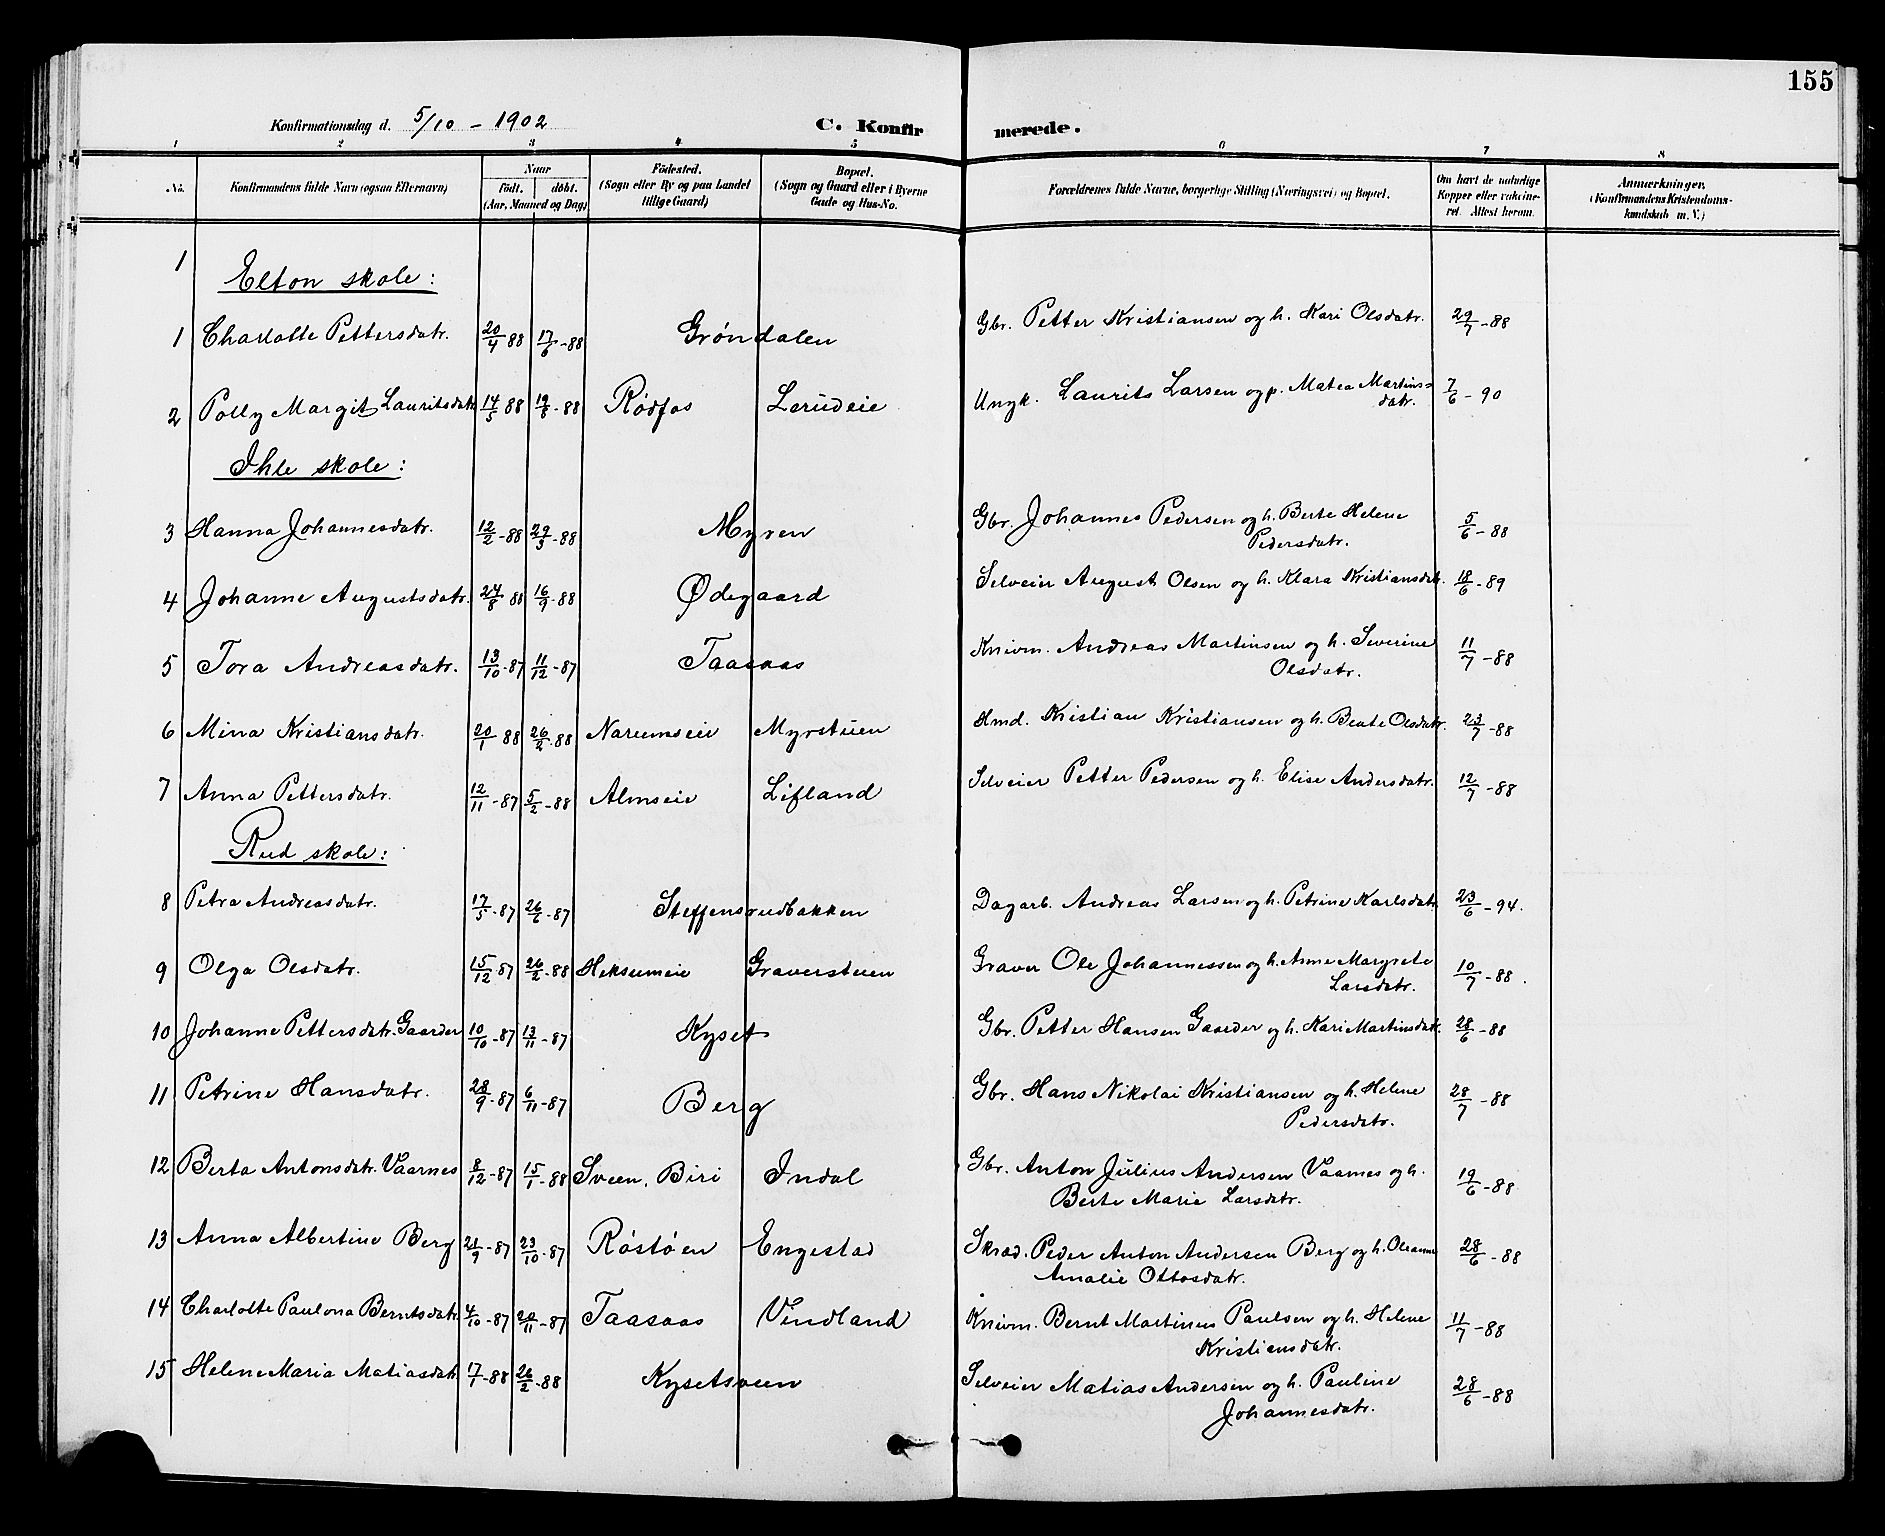 155
Konfirmationsdag d. 5/10 - 1902 C. Konfirmerede.
1 2 3 4 5 6 7 8
No. Konfirmandens fulde Navn (ogsaa Efternavn) Naar født. døbt. (Aar, Maaned og Dag) Fødested. (Sogn eller By og paa Landet tillige Gaard) Bopæl. (Sogn og Gaard eller i Byerne Gade og Hus-No. Forældrenes fulde Navne, borgerlige Stilling (Næringsvei) og Bopæl. Om havt de naturlige Kopper eller vakcineret. Attest herom. Anmærkninger. (Konfirmandens Kristendomskundskab m. V.)
1
Elton skole:
1 Charlotte Pettersdatr. 20/4 88 17/6 -88 Grøndalen Gbr. Petter Kristiansen og h. Kari Olsdatr. 29/7 -88
2 Polly Margit Lauritsdatr. 14/5 88 19/8 -88 Rødfos Lerudeie Ungk. Laurits Larsen og p. Matea Martins= 7/6 - 90
datr.
Ihle skole:
3 Hanna Johannesdatr. 12/2 -88 29/3 -88 Myren Gbr. Johannes Pedersen og h. Berte Helene 5/6 -88
Pedersdatr.
4 Johanne Augustsdatr. 24/8 88 16/9 -88 Ødegaard Selveier August Olsen og h. Klara Kristiansdatr. 18/6 -89
5 Tora Andreasdatr. 13/10 -87 11/12 -87 Taasaas Knivm. Andreas Martinsen og h. Severine 11/7 -88
Olsdatr.
6 Mina Kristiansdatr. 20/1 88 26/2 -88 Narumseie Myrstuen Hmd. Kristian Kristiansen og h. Beate Olsdatr. 23/7 -88
7 Anna Pettersdatr. 12/11 -87 5/2 -88 Almseie Lifland Selveier Petter Pedersen og h. Elise Andersdatr. 12/7 -88
Rud skole:
8 Petra Andreasdatr. 17/5 -87 26/6 -87 Steffensrudbakken Dagarb. Andreas Larsen og h. Petrine Karlsdatr. 23/6 -94.
9 Olga Olsdatr. 15/12 -87 26/2 -88 Heksumeie Graverstuen Graver Ole Johannessen og h. Anne Margrete 10/7 -88.
Larsdatr.
10 Johanne Pettersdatr. Gaarder 10/10 -87 13/11 -87 Kyset Gbr. Petter Hansen Gaarder og h. Kari Martinsdatr. 28/6 -88
11 Petrine Hansdatr. 28/9 -87 6/11 -87 Berg Gbr. Hans Nikolai Kristiansen og h. Helene 28/7 -88
Pedersdatr.
12 Berta Antonsdatr. Vaarnes 8/12 -87 15/1 -88 Sveen, Biri Indal Gbr. Anton Julius Andersen Vaarnes og h. 19/6 -88
Berte Marie Larsdatr.
13 Anna Albertine Berg 21/9 -87 23/10 -87 Røstøen Engestad Skræd. Peder Anton Andersen Berg og h. Oleanne 28/6 -88
Amalie Ottosdatr.
14 Charlotte Paulona Berntsdatr. 4/10 -87 20/11 -87 Taasaas Vindland Knivm. Bernt Martinus Paulsen og h. Helene 11/7 -88
Kristiansdatr.
15 Helene Maria Matiasdatr. 17/1 -88 26/2 -88 Kysetsveen Selveier Matias Andersen og h. Pauline 28/6 -88
Johannesdatr.